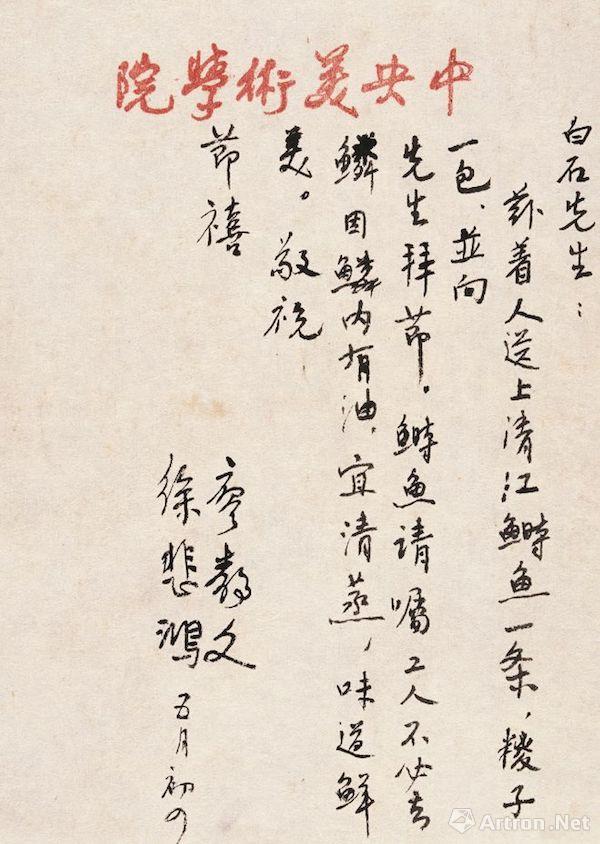 中央美術學院
白石先生：
茲着人送上清江鰣魚一条，糉子
一包、並向
先生拜節。鰣魚请嘱工人不必去
鱗因鱗内有油，宜清蒸，味道鮮
美。敬祝
節禧
廖静文
徐悲鴻 五月初四
Artron.Net